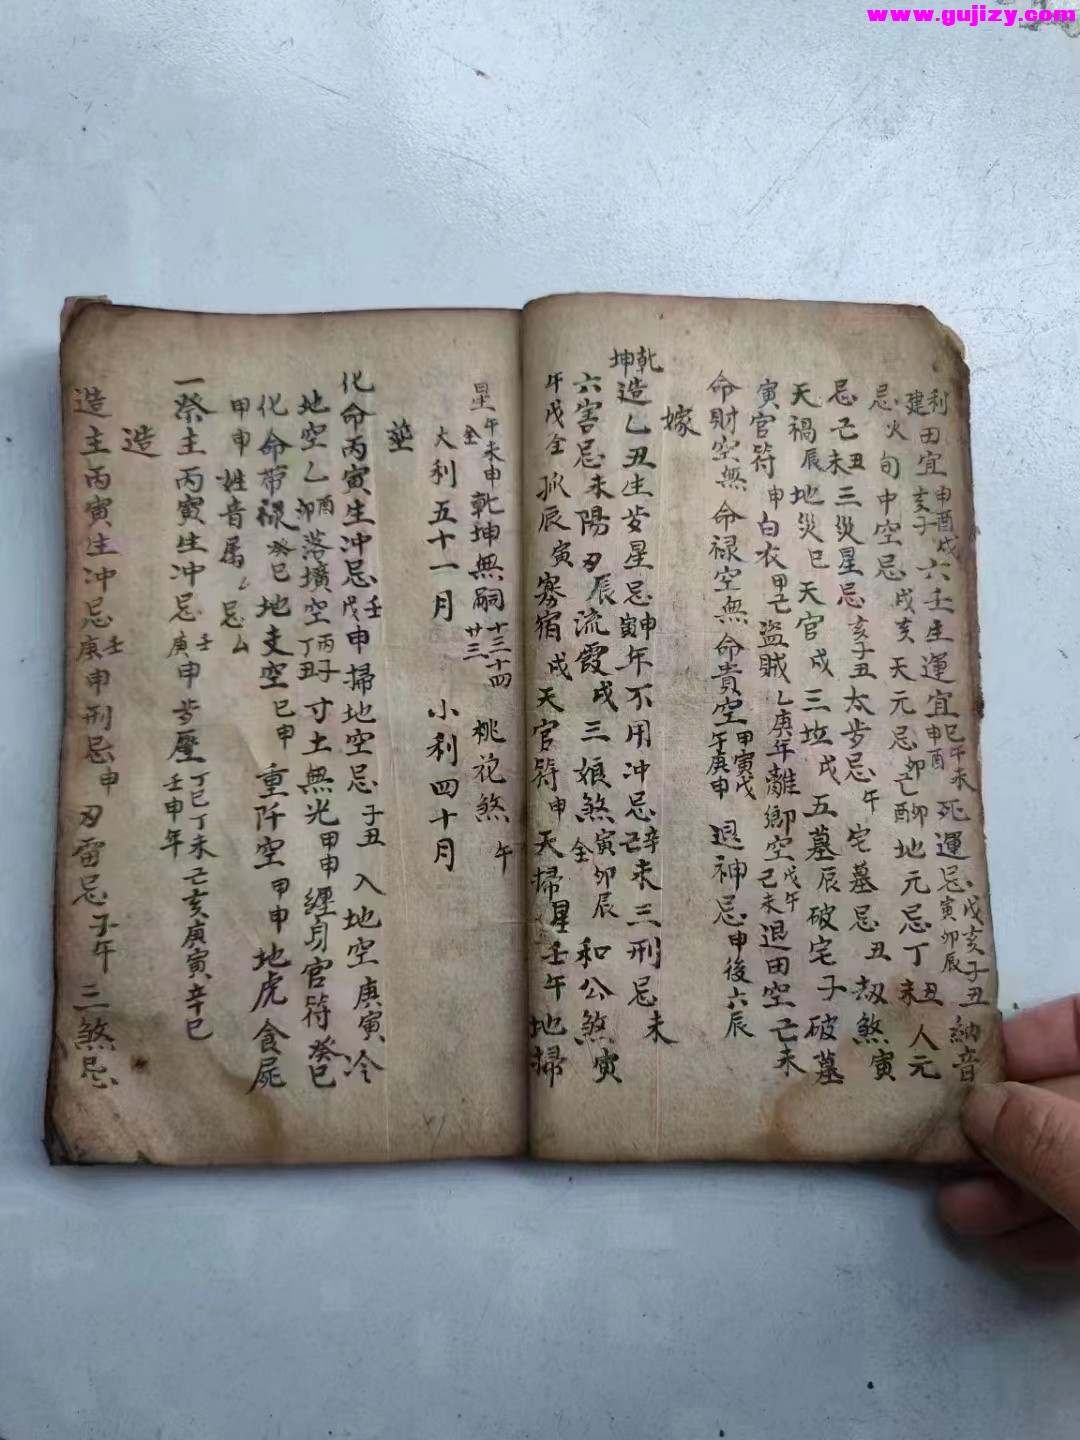 www.gujizy.com
利建田宜申酉戌亥子六壬生運宜巳午未申酉死運忌戊亥子丑寅卯辰納音
忌火旬中空忌戌亥天元忌卯己酉卯地元忌丁丑未人元
忌己丑未三災星忌亥子丑太歩忌午宅墓忌丑刼煞寅
天禍辰地災巳天官戌三坵戌五墓辰破宅子破墓
寅官符申白衣甲乙盜賊乙庚年離鄉空戊午己未退田空己未
命財空無命禄空無命貴空甲寅戊午庚申退神忌申後六辰
嫁
乾坤造乙丑生歩星忌申寅年不用冲忌辛己未三刑忌未
六害忌未陽刃辰流霞戌三娘煞全寅卯辰和公煞寅
午戌全孤辰寅寡宿戌天官符申天掃星壬午地掃
星午未申全乾坤無嗣十三十四廿三桃花煞午
大利五十一月小利四十月
塟
化命丙寅生冲忌壬戊申掃地空忌子丑入地空庚寅冷
地空乙酉卯落壙空丙子丁丑寸土無光甲申纏身官符癸巳
化命帶禄癸巳地支空巳申重阡空甲申地虎食屍
甲申姓音属忌
一祭主丙寅生冲忌壬庚申歩壓丁巳丁未己亥庚寅辛巳壬申年
造
造主丙寅生冲忌壬庚申刑忌申刃雷忌子午三煞忌